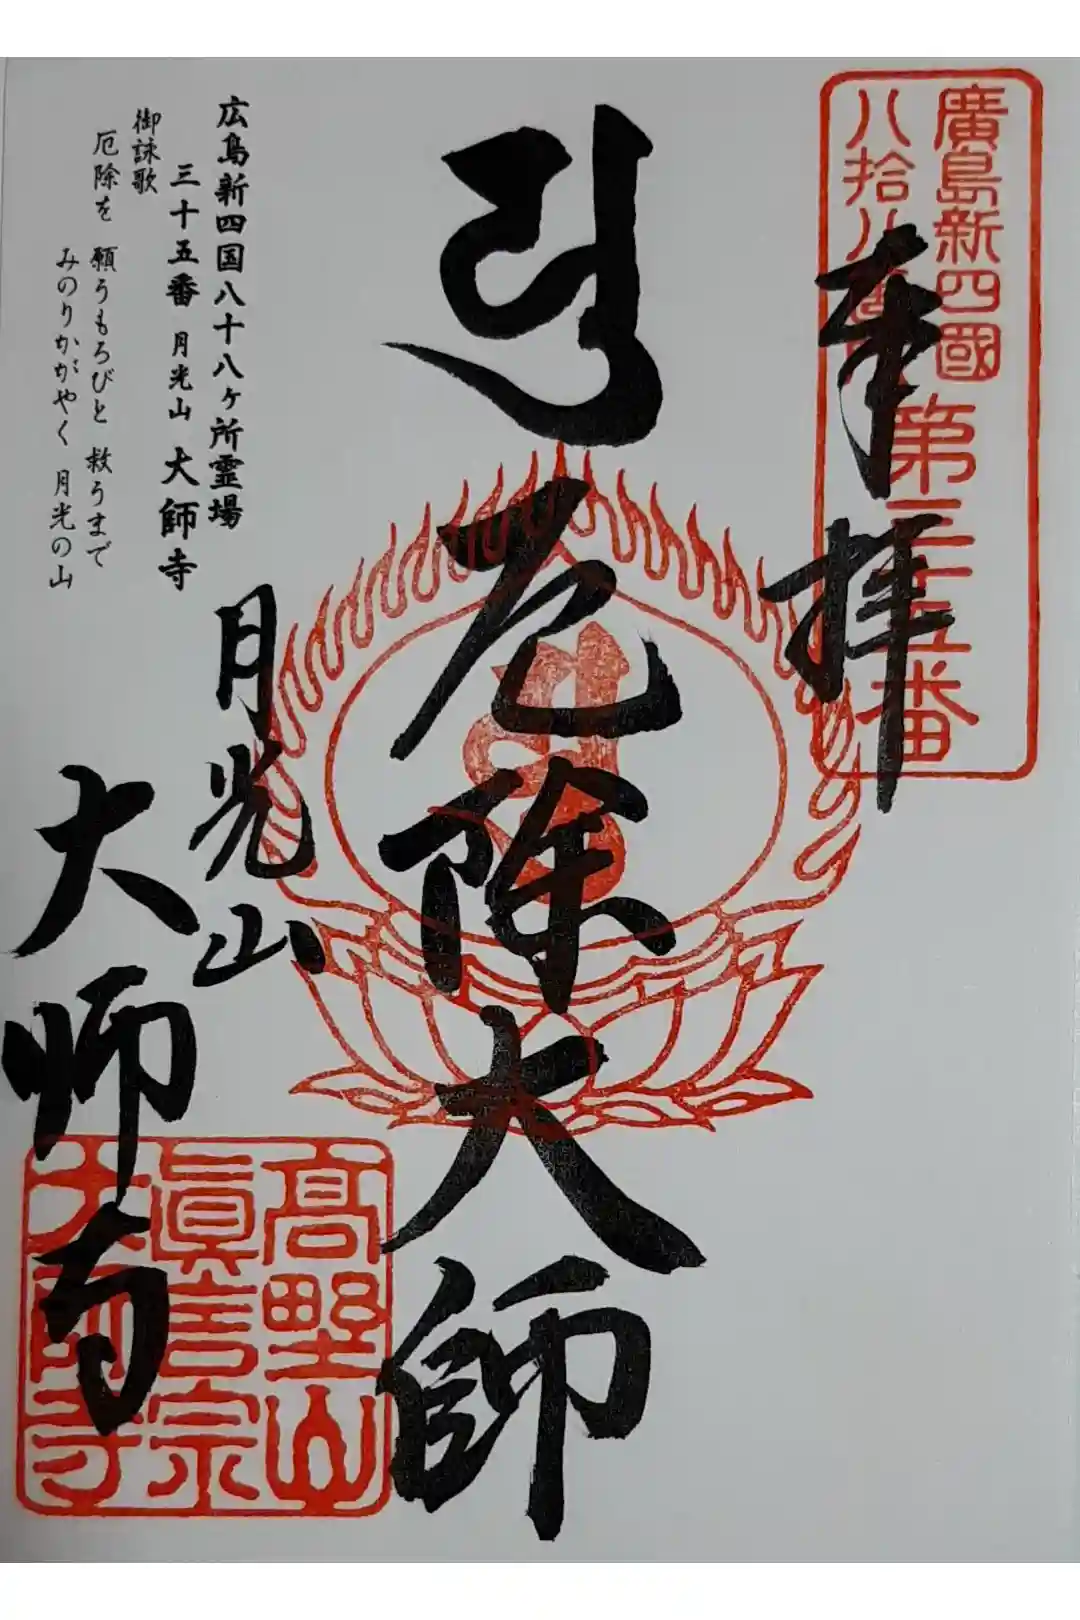 廣島新四國
八拾八
第三十五番
奉拝
厄除大師
広島新四国八十八ヶ所霊場
三十五番 月光山 大師寺
御詠歌
厄除を 願うもろびと 救うまで
みのりかがやく 月光の山
月光山
大師寺
高野山
眞言宗
大師寺